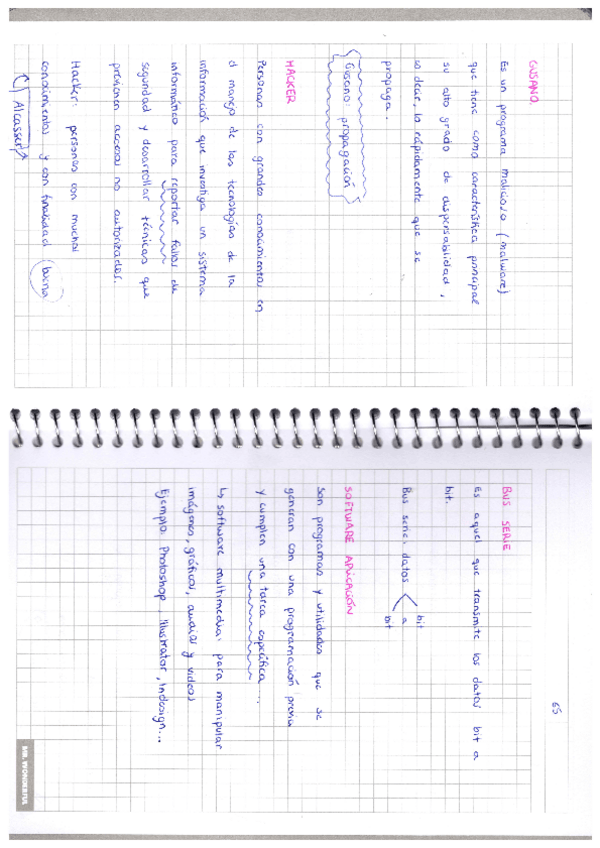 GUSANO.
Es un programa malicioso (malware)
que tiene como característica principal
su alto grado de dispersabilidad,
es decir, lo rápidamente que se
propaga.
Gusano: propagación
HACKER
Personas con grandes conocimientos en
el manejo de las tecnologías de la
información que investiga un sistema
informático para reportar fallos de
seguridad y desarrollar técnicas que
previenen accesos no autorizados.
Hacker: personas con muchos
conocimientos y con finalidad buena
Alcasser
65
BUS SERIE
Es aquel que transmite los datos bit a
bit.
Bus serie: datos bit a bit
SOFTWARE APLICACIÓN
Son programas y utilidades que se
generan con una programación previa
y cumplen una tarea específica...
↳ software multimedia: para manipular
imágenes, gráficos, audios y videos
Ejemplo: Photoshop, Illustrator, Indesign...
MR. WONDERFUL